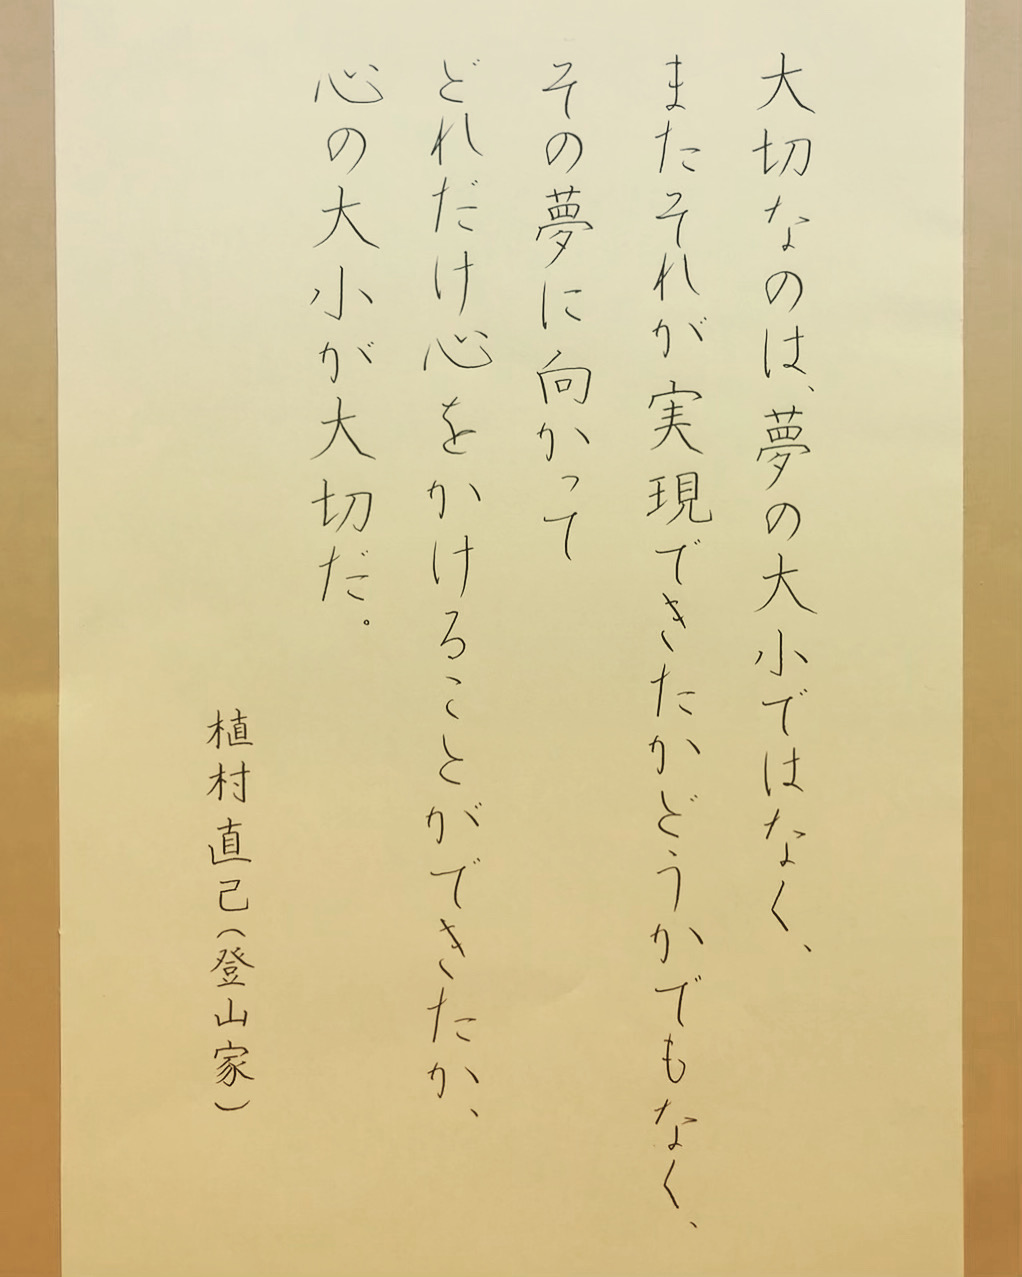 大切なのは、夢の大小ではなく、
またそれが実現できたかどうかでもなく、
その夢に向かって
どれだけ心をかけることができたか、
心の大小が大切だ。
植村直己(登山家)